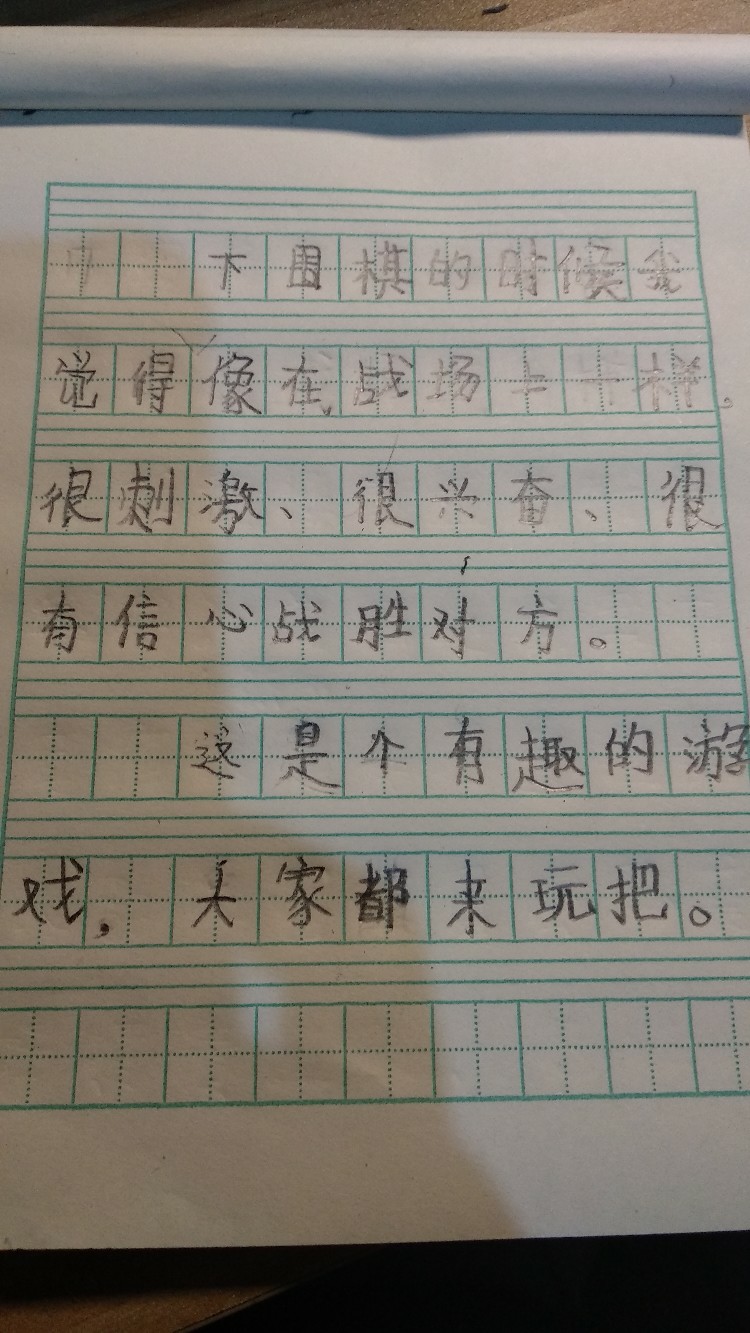 下围棋的时候我
觉得像在战场上一样。
很刺激、很兴奋、很
有信心战胜对方。
这是个有趣的游
戏，大家都来玩把。